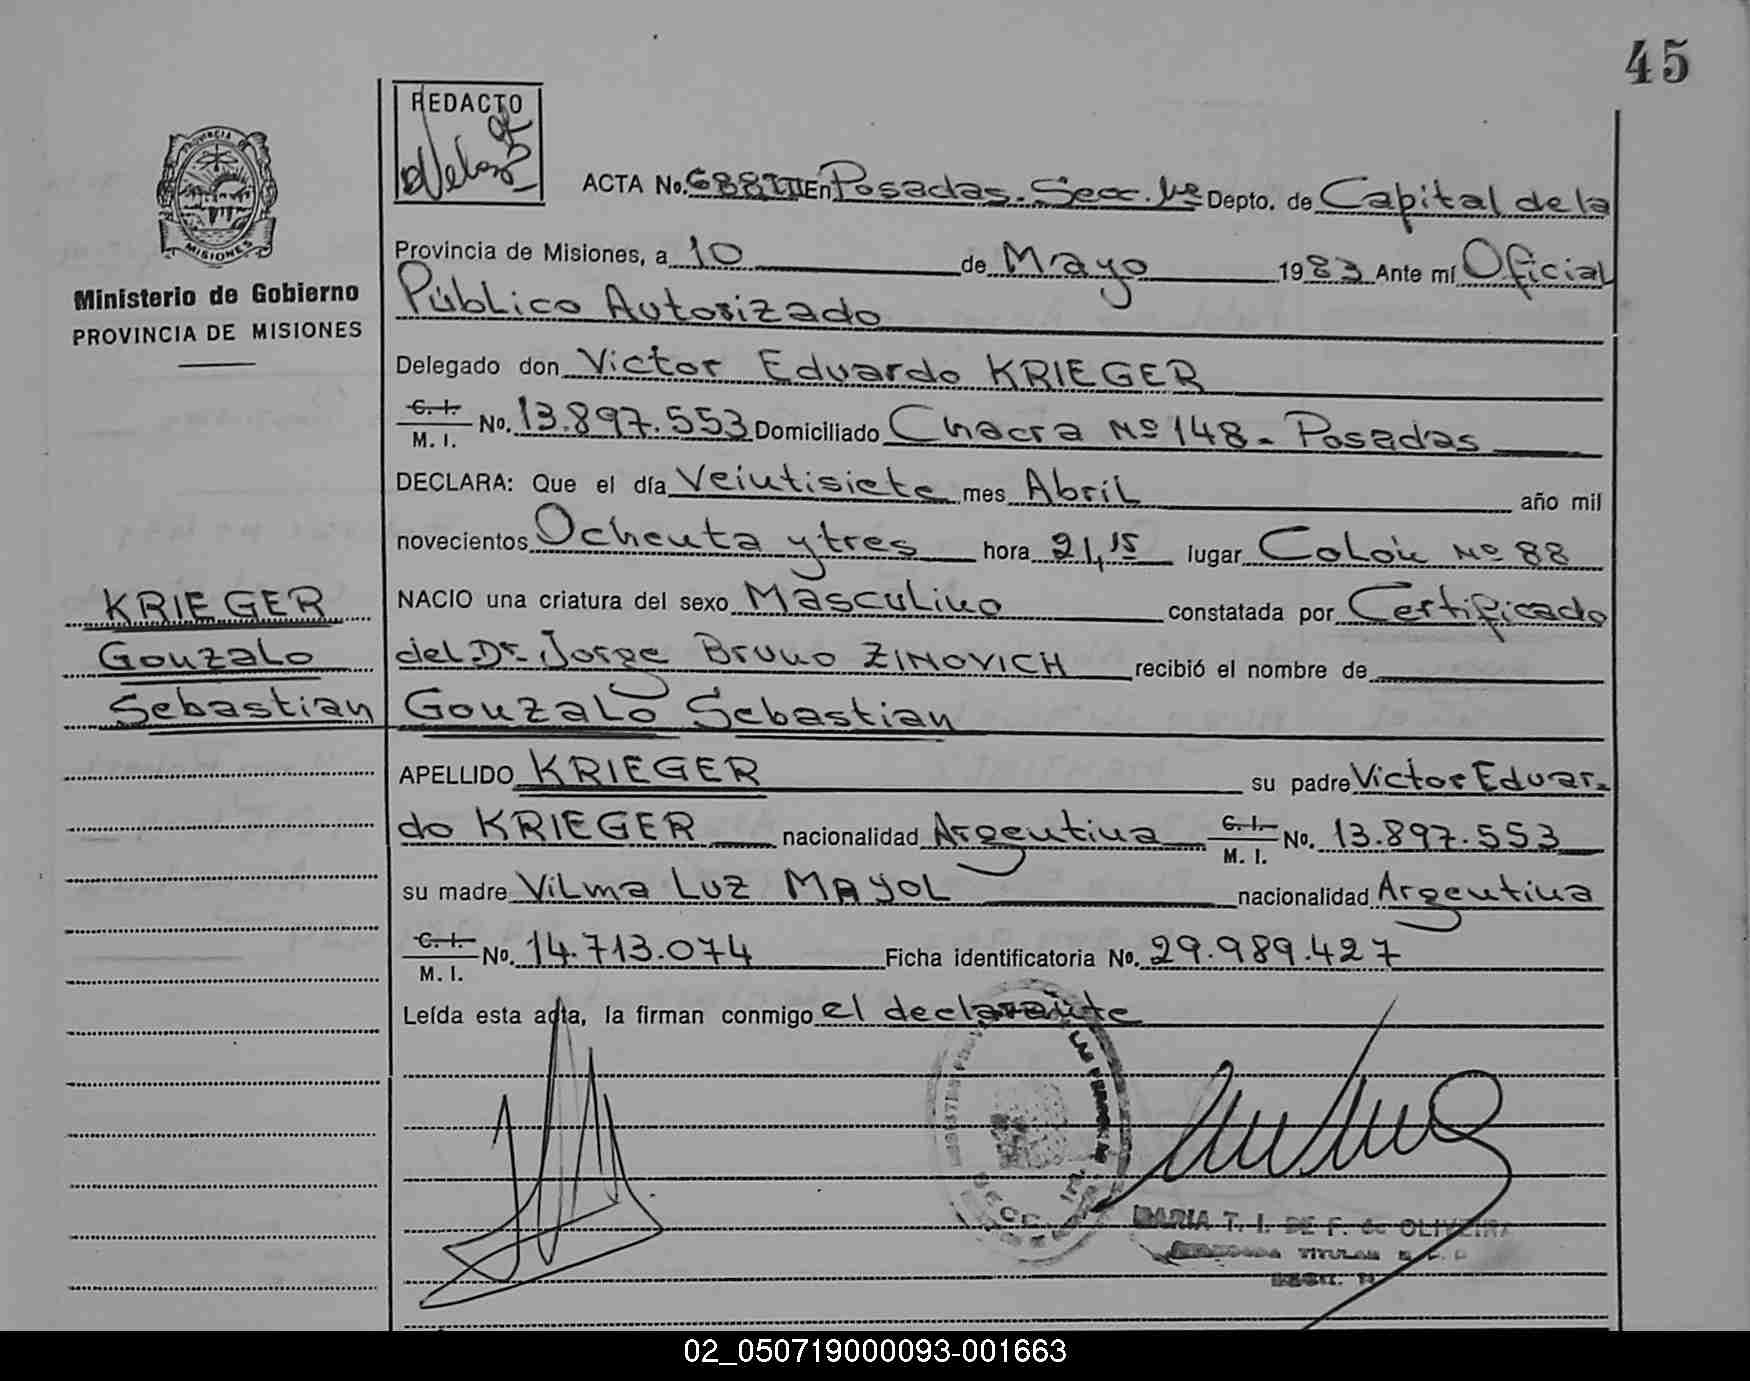 45
REDACTO
PROVINCIA DE MISIONES
ACTA No. 688 III En Posadas. Secc. 1ª Depto. de Capital de la
Provincia de Misiones, a 10 de Mayo 1983 Ante mí Oficial
Público Autorizado
Ministerio de Gobierno
PROVINCIA DE MISIONES
Delegado don Victor Eduardo KRIEGER
C. I. M. I. No. 13.897.553 Domiciliado Chacra Nº 148 - Posadas
DECLARA: Que el día Veintisiete mes Abril año mil
novecientos Ochenta y tres hora 21,15 lugar Colón Nº 88
NACIO una criatura del sexo Masculino constatada por Certificado
del Dr. Jorge Bruno ZINOVICH recibió el nombre de
Gonzalo Sebastian
KRIEGER
Gonzalo
Sebastian
APELLIDO KRIEGER su padre Victor Eduar-
do KRIEGER nacionalidad Argentina C. I. M. I. No. 13.897.553
su madre Vilma Luz MAYOL nacionalidad Argentina
C. I. M. I. No. 14.713.074 Ficha identificatoria No. 29.989.427
Leída esta acta, la firman conmigo el declarante
MARIA T. I. DE F. de OLIVEIRA
TITULAR
02_050719000093-001663